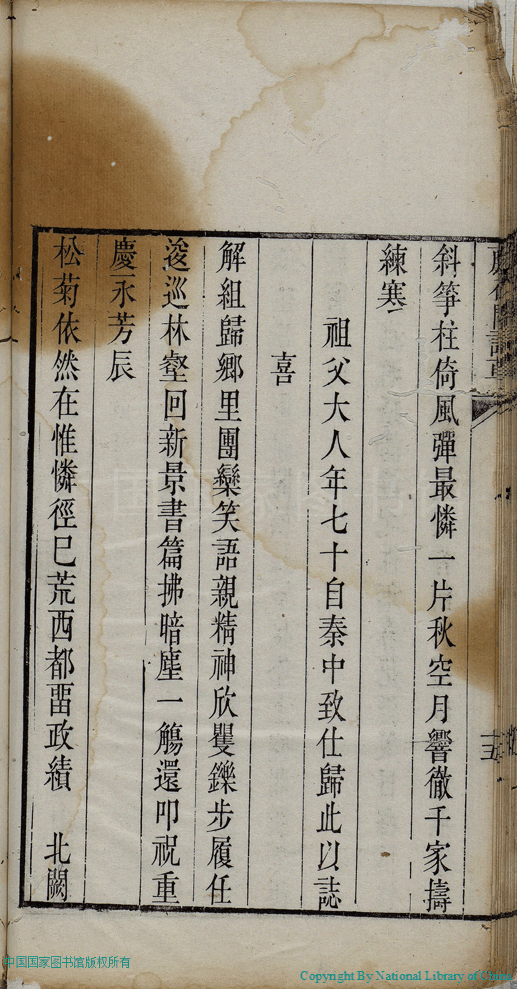 斜箏柱倚風彈最憐一片秋空月響徹千家擣
練寒
祖父大人年七十自秦中致仕歸此以誌
喜
解組歸鄉里團欒笑語親精神欣矍鑠步履任
逡巡林壑回新景書篇拂暗塵一觴還叩祝重
慶永芳辰
松菊依然在惟憐徑巳荒西都畱政績 北闕
十五
中国国家图书馆版权所有
Copyright By National Library of China